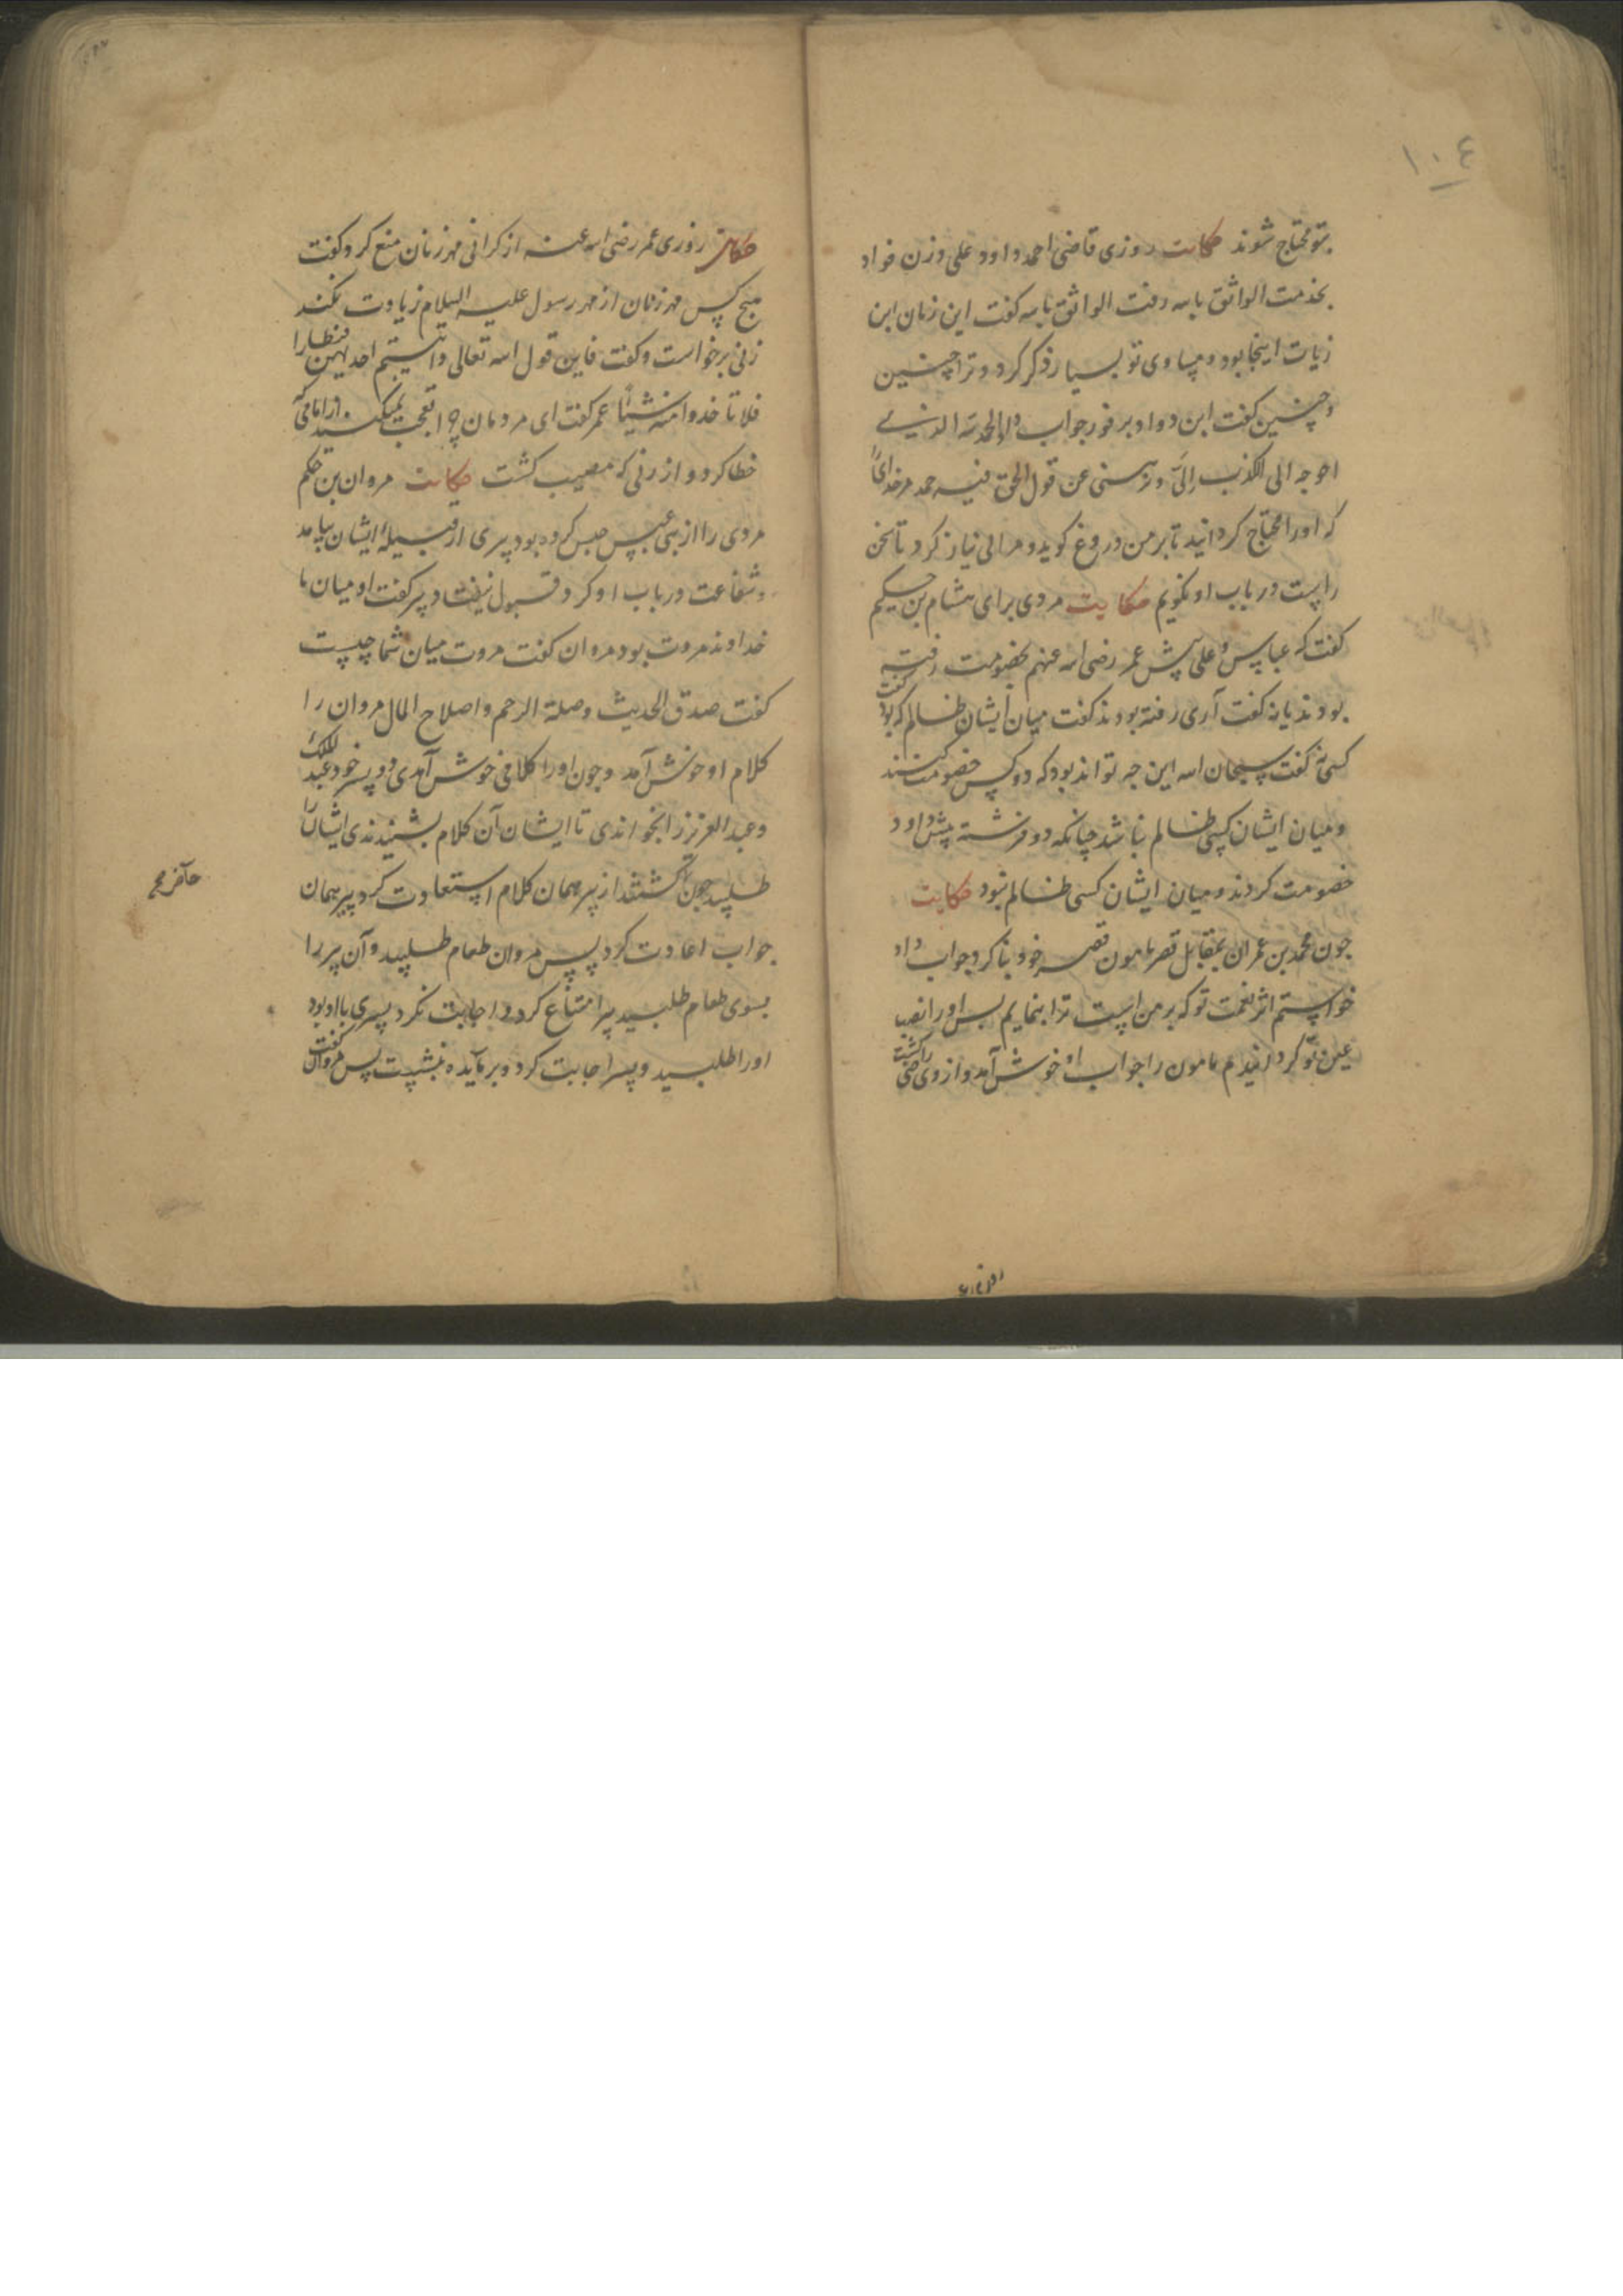 ۱۰٤
بتو محتاج شوند حکایت روزی قاضی احمد داود علی وزن فواد
بخدمت الواثق بالله رفت الواثق بالله گفت این زمان ابن
زیات اینجا بود و مساوی تو بسیار ذکر کرد و ترا چنین
و چنین گفت ابن دواد بر فور جواب داد الحمد لله الذی
احوجه الی الکذب إلیَّ و نزهنی عن قول الحق فیه حمد مر خدای را
که او را محتاج گردانید تا بر من دروغ گوید و مرا بی نیاز کرد تا سخن
راست در باب او نگویم حکایت مردی برای هشام بن حکیم
گفت که عباس و علی پیش عمر رضی الله عنهم بخصومت رفته
بودند یا نه گفت آری رفته بودند گفت میان ایشان ظالم که بود گفت
کسی نه گفت سبحان الله این چه تواند بود که دو کس خصومت کنند
و میان ایشان کسی ظالم نباشد چنانکه دو فرشته پیش داود
خصومت کردند و میان ایشان کسی ظالم نبود حکایت
چون محمد بن عمران بمقابل قصر مامون قصر خود بنا کرد جواب داد
خواستم اثر نعمت تو که بر من است ترا بنمایم پس او را نصب
عین تو گردانیدم مامون را جواب او خوش آمد و از وی راضی گشت
حکایت روزی عمر رضی الله عنه از گرانی مهر زنان منع کرد و گفت
هیچ کس مهر زنان از مهر رسول علیه السلام زیادت نکند
زنی برخواست و گفت فاین قول الله تعالی و آتیتم احدیهن قنطارا
فلا تاخذوا منه شیئاً عمر گفت ای مردمان چرا تعجب نمیکنید از امامی که
خطا کرد و از زنی که مصیب گشت حکایت مروان بن حکم
مردی را از بنی عبس حبس کرده بود پیری از قبیلهٔ ایشان بیامد
و شفاعت در باب او کرد قبول نیفتاد پیر گفت او میان ما
خداوند مروت بود مروان گفت مروت میان شما چیست
گفت صدق الحدیث وصلة الرحم و اصلاح المال مروان را
کلام او خوش آمد و چون او را کلامی خوش آمدی دو پسر خود عبد الملک
و عبد العزیز را بخواندی تا ایشان آن کلام بشنیدندی ایشان را
طلبید چون گشتند از پیر همان کلام استعادت کرد پیر همان
جواب اعادت کرد پس مروان طعام طلبید و آن پیر را
بسوی طعام طلبید پیر امتناع کرد و اجابت نکرد پسری با او بود
او را طلبید و پسر اجابت کرد و بر مایده بنشست پس مروان گفت